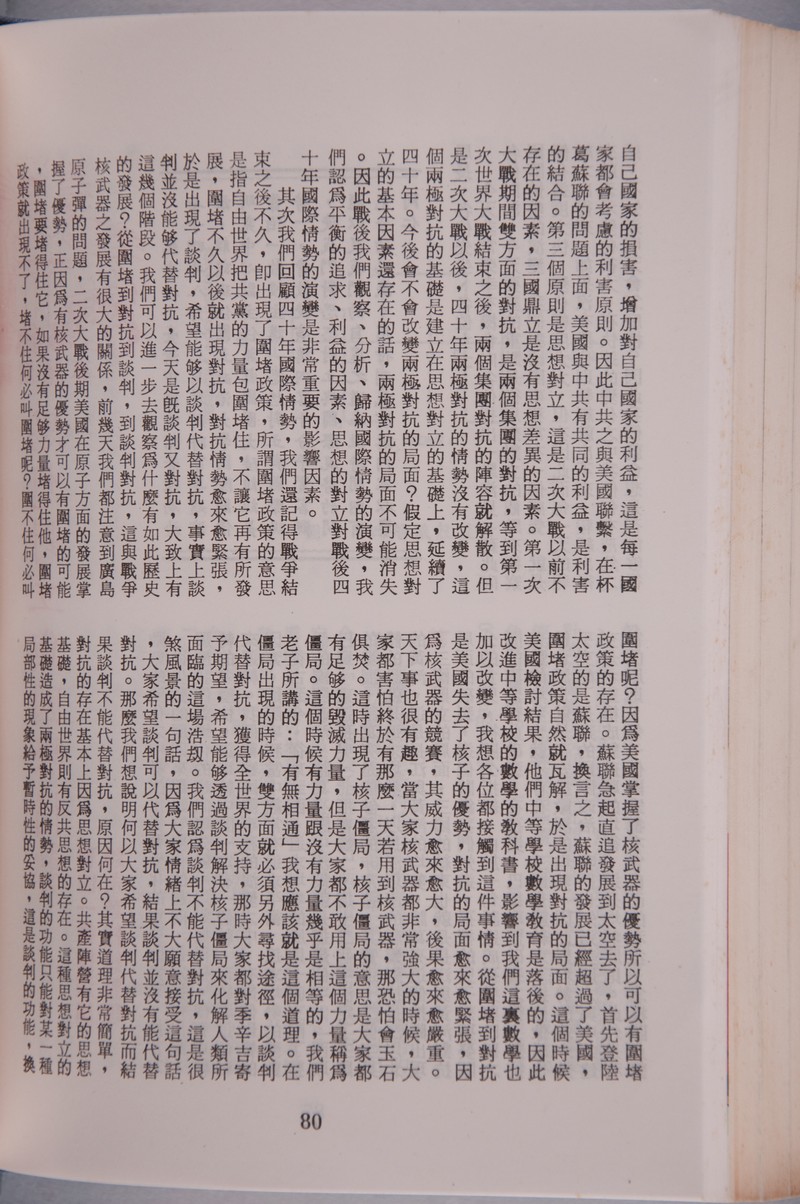 自己國家的損害，增加對自己國家的利益，這是每一國
家都會考慮的利害原則。因此中共之與美國聯繫，在杯
葛蘇聯的問題上面，美國與中共有共同的利益，是利害
的結合。第三個原則是思想對立，這是二次大戰以前不
存在的因素，三國鼎立是沒有思想差異的因素。第一次
大戰期間雙方面的對抗，是兩個集團的對抗，等到第一
次世界大戰結束之後，兩個集團對抗的陣容就解散。但
是二次大戰以後，四十年兩極對抗的情勢沒有改變，這
個兩極對抗的基礎是建立在思想對立的基礎上，延續了
四十年。今後會不會改變兩極對抗的局面？假定思想對
立的基本因素還存在的話，兩極對抗的局面不可能消失
。因此戰後我們觀察、分析、歸納國際情勢的演變，我
們認爲平衡的追求、利益的因素、思想的對立對戰後四
十年國際情勢的演變是非常重要的影響因素。
其次我們回顧四十年國際情勢，我們還記得戰爭結
束之後不久，卽出現了圍堵政策，所謂圍堵政策的意思
是指自由世界把共黨的力量包圍堵住，不讓它再有所發
展，圍堵不久以後就出現對抗，對抗情勢愈來愈緊張，
於是出現了談判，希望能够以談判代替對抗，事實上談
判並沒能够代替對抗，今天是旣談判又對抗，大致上有
這幾個階段。我們可以進一步去觀察爲什麼有如此歷史
的發展？從圍堵到對抗到談判，到談判對抗，這與戰爭
核武器之發展有很大的關係，前幾天我們都注意到廣島
原子彈的問題，二次大戰後期美國在原子方面的發展掌
握了優勢，正因爲有核武器的優勢才可以有圍堵的可能
，圍堵要堵得住它，如果沒有足够力量堵得住他，圍堵
政策就出現不了，堵不住何必叫圍堵呢？圍不住何必叫
圍堵呢？因爲美國掌握了核武器的優勢所以可以有圍堵
政策的存在。蘇聯急起直追發展到太空去了，首先登陸
太空的是蘇聯，換言之，蘇聯的發展已經超過了美國，
圍堵政策自然就瓦解，於是出現對抗的局面。這個時候
美國檢討結果，他們中等學校數學敎育是落後的，因此
改進中等學校的數學的敎科書，影響到我們這裏數學也
加以改變，我想各位都接觸到這件事情。從圍堵到對抗
是美國失去了核子的優勢，對抗的局面愈來愈緊張，因
爲核武器的競賽，其威力愈來愈大，後果愈來愈嚴重。
天下事也很有趣，當大家核武器都非常強大的時候，大
家都害怕終於有那麼一天若用到核武器，那恐怕會玉石
俱焚。這時出現了核子僵局，核子僵局的意思是大家都
有足够的毀滅力量，但是大家都不敢用上這個力量稱爲
僵局。這個時候有力量跟沒有力量幾乎是相等的，我們
老子所講的：「有無相通」我想應該就是這個道理。在
僵局出現的時候，雙方面就必須另外尋找途徑，以談判
代替對抗，獲得全世界的支持，那時大家都對季辛吉寄
予期望，希望能够透過談判解決核子僵局來化解人類所
面臨的這場浩刼。我們認爲談判不能代替對抗，這是很
煞風景的一句話，因爲大家情緒上不大願意接受這句話
，大家希望談判可以代替對抗，結果談判並沒有能代替
對抗。那麼我們想說明何以大家希望談判代替對抗而結
果談判不能代替對抗，原因何在？其實道理非常簡單，
對抗的存在基本上因爲思想對立。共產陣營有它的思想
基礎，自由世界則有反共思想的存在。這種思想對立的
基礎造成了兩極對抗的情勢，談判的功能只能對某一種
局部性的現象給予暫時性的妥協，這是談判的功能，換
80